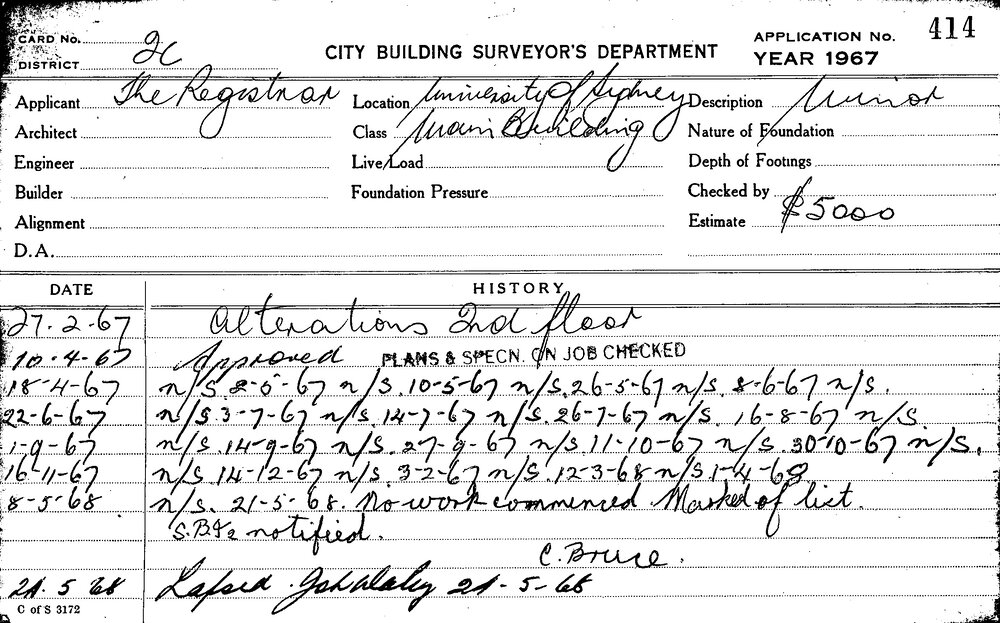 CARD No.
DISTRICT 2C
CITY BUILDING SURVEYOR'S DEPARTMENT
APPLICATION No. 414
YEAR 1967
Applicant The Registrar Location University of Sydney Description Minor
Architect Class Main Building Nature of Foundation
Engineer Live/Load Depth of Footings
Builder Foundation Pressure Checked by
Alignment Estimate $5000
D.A.
DATE HISTORY
27.2-67 Alterations 2nd floor
10.4-67 Approved PLANS & SPECN. ON JOB CHECKED
18-4-67 n/s. 2-5-67 n/s. 10-5-67 n/s. 26-5-67 n/s. 8-6-67 n/s.
22-6-67 n/s. 3-7-67 n/s. 14-7-67 n/s. 26-7-67 n/s. 16-8-67 n/s.
1-9-67 n/s. 14-9-67 n/s. 27-9-67 n/s. 11-10-67 n/s. 30-10-67 n/s.
16-11-67 n/s. 14-12-67 n/s. 3-2-67 n/s. 12-3-68 n/s. 1-4-68
8-5-68 n/s. 21-5-68. No work commenced. Marked of list.
notified.
C. Bruce.
21.5 68 Lapsed 21-5-68
C of S 3172